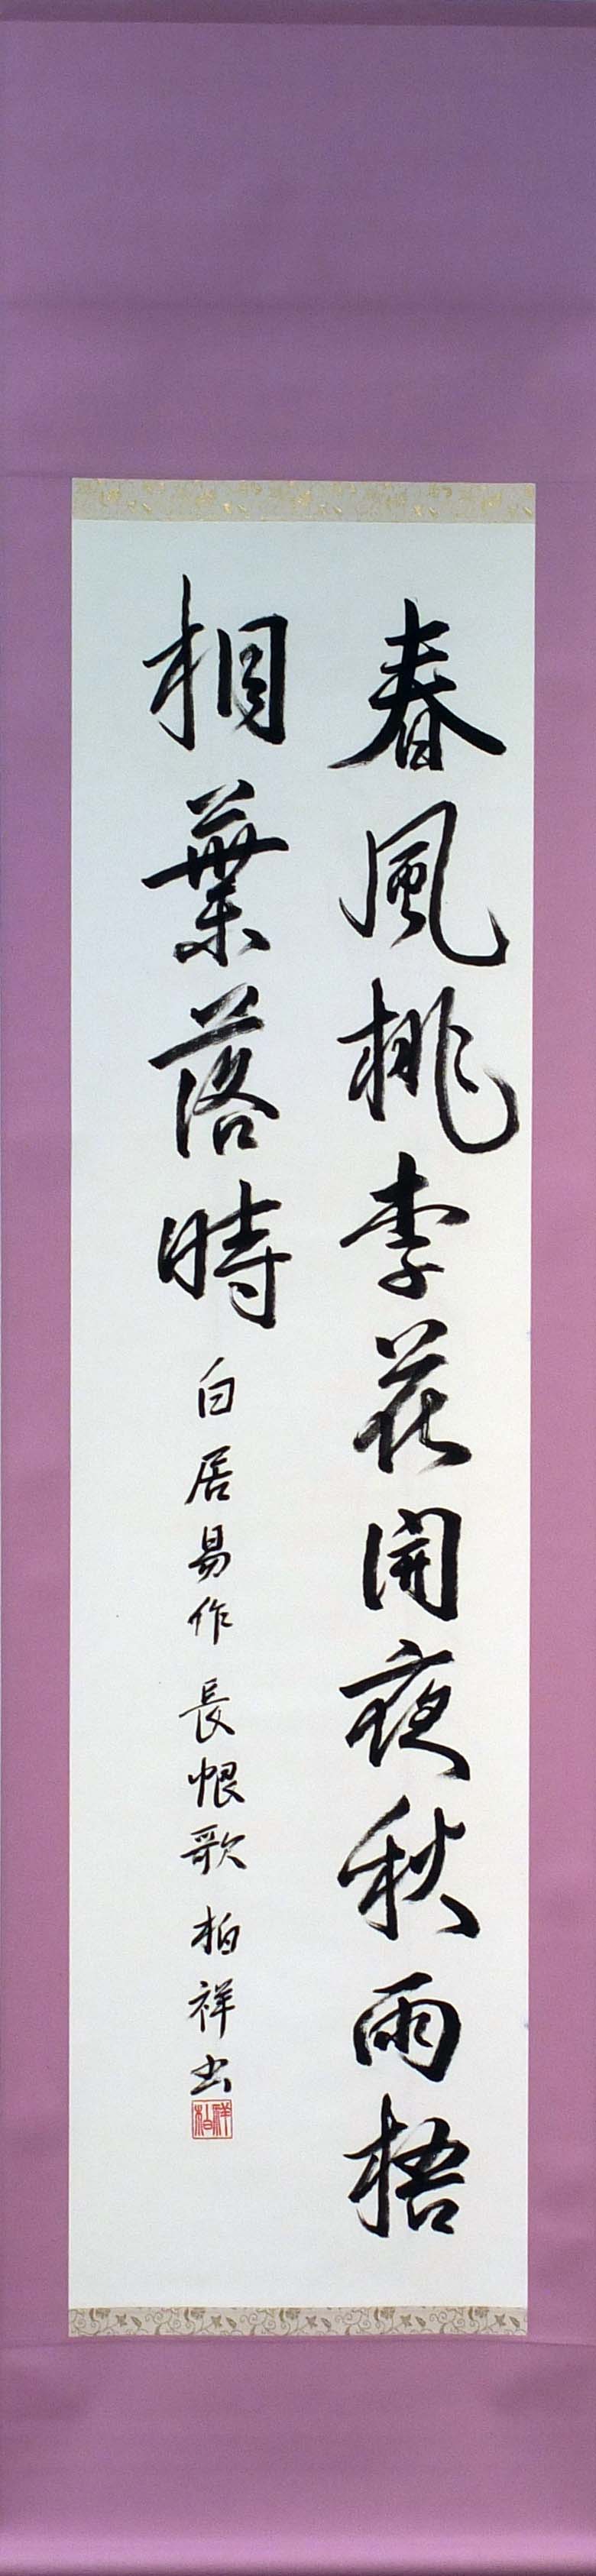 春風桃李花開夜秋雨梧
桐葉落時 白居易作 長恨歌 柏祥书
柏祥